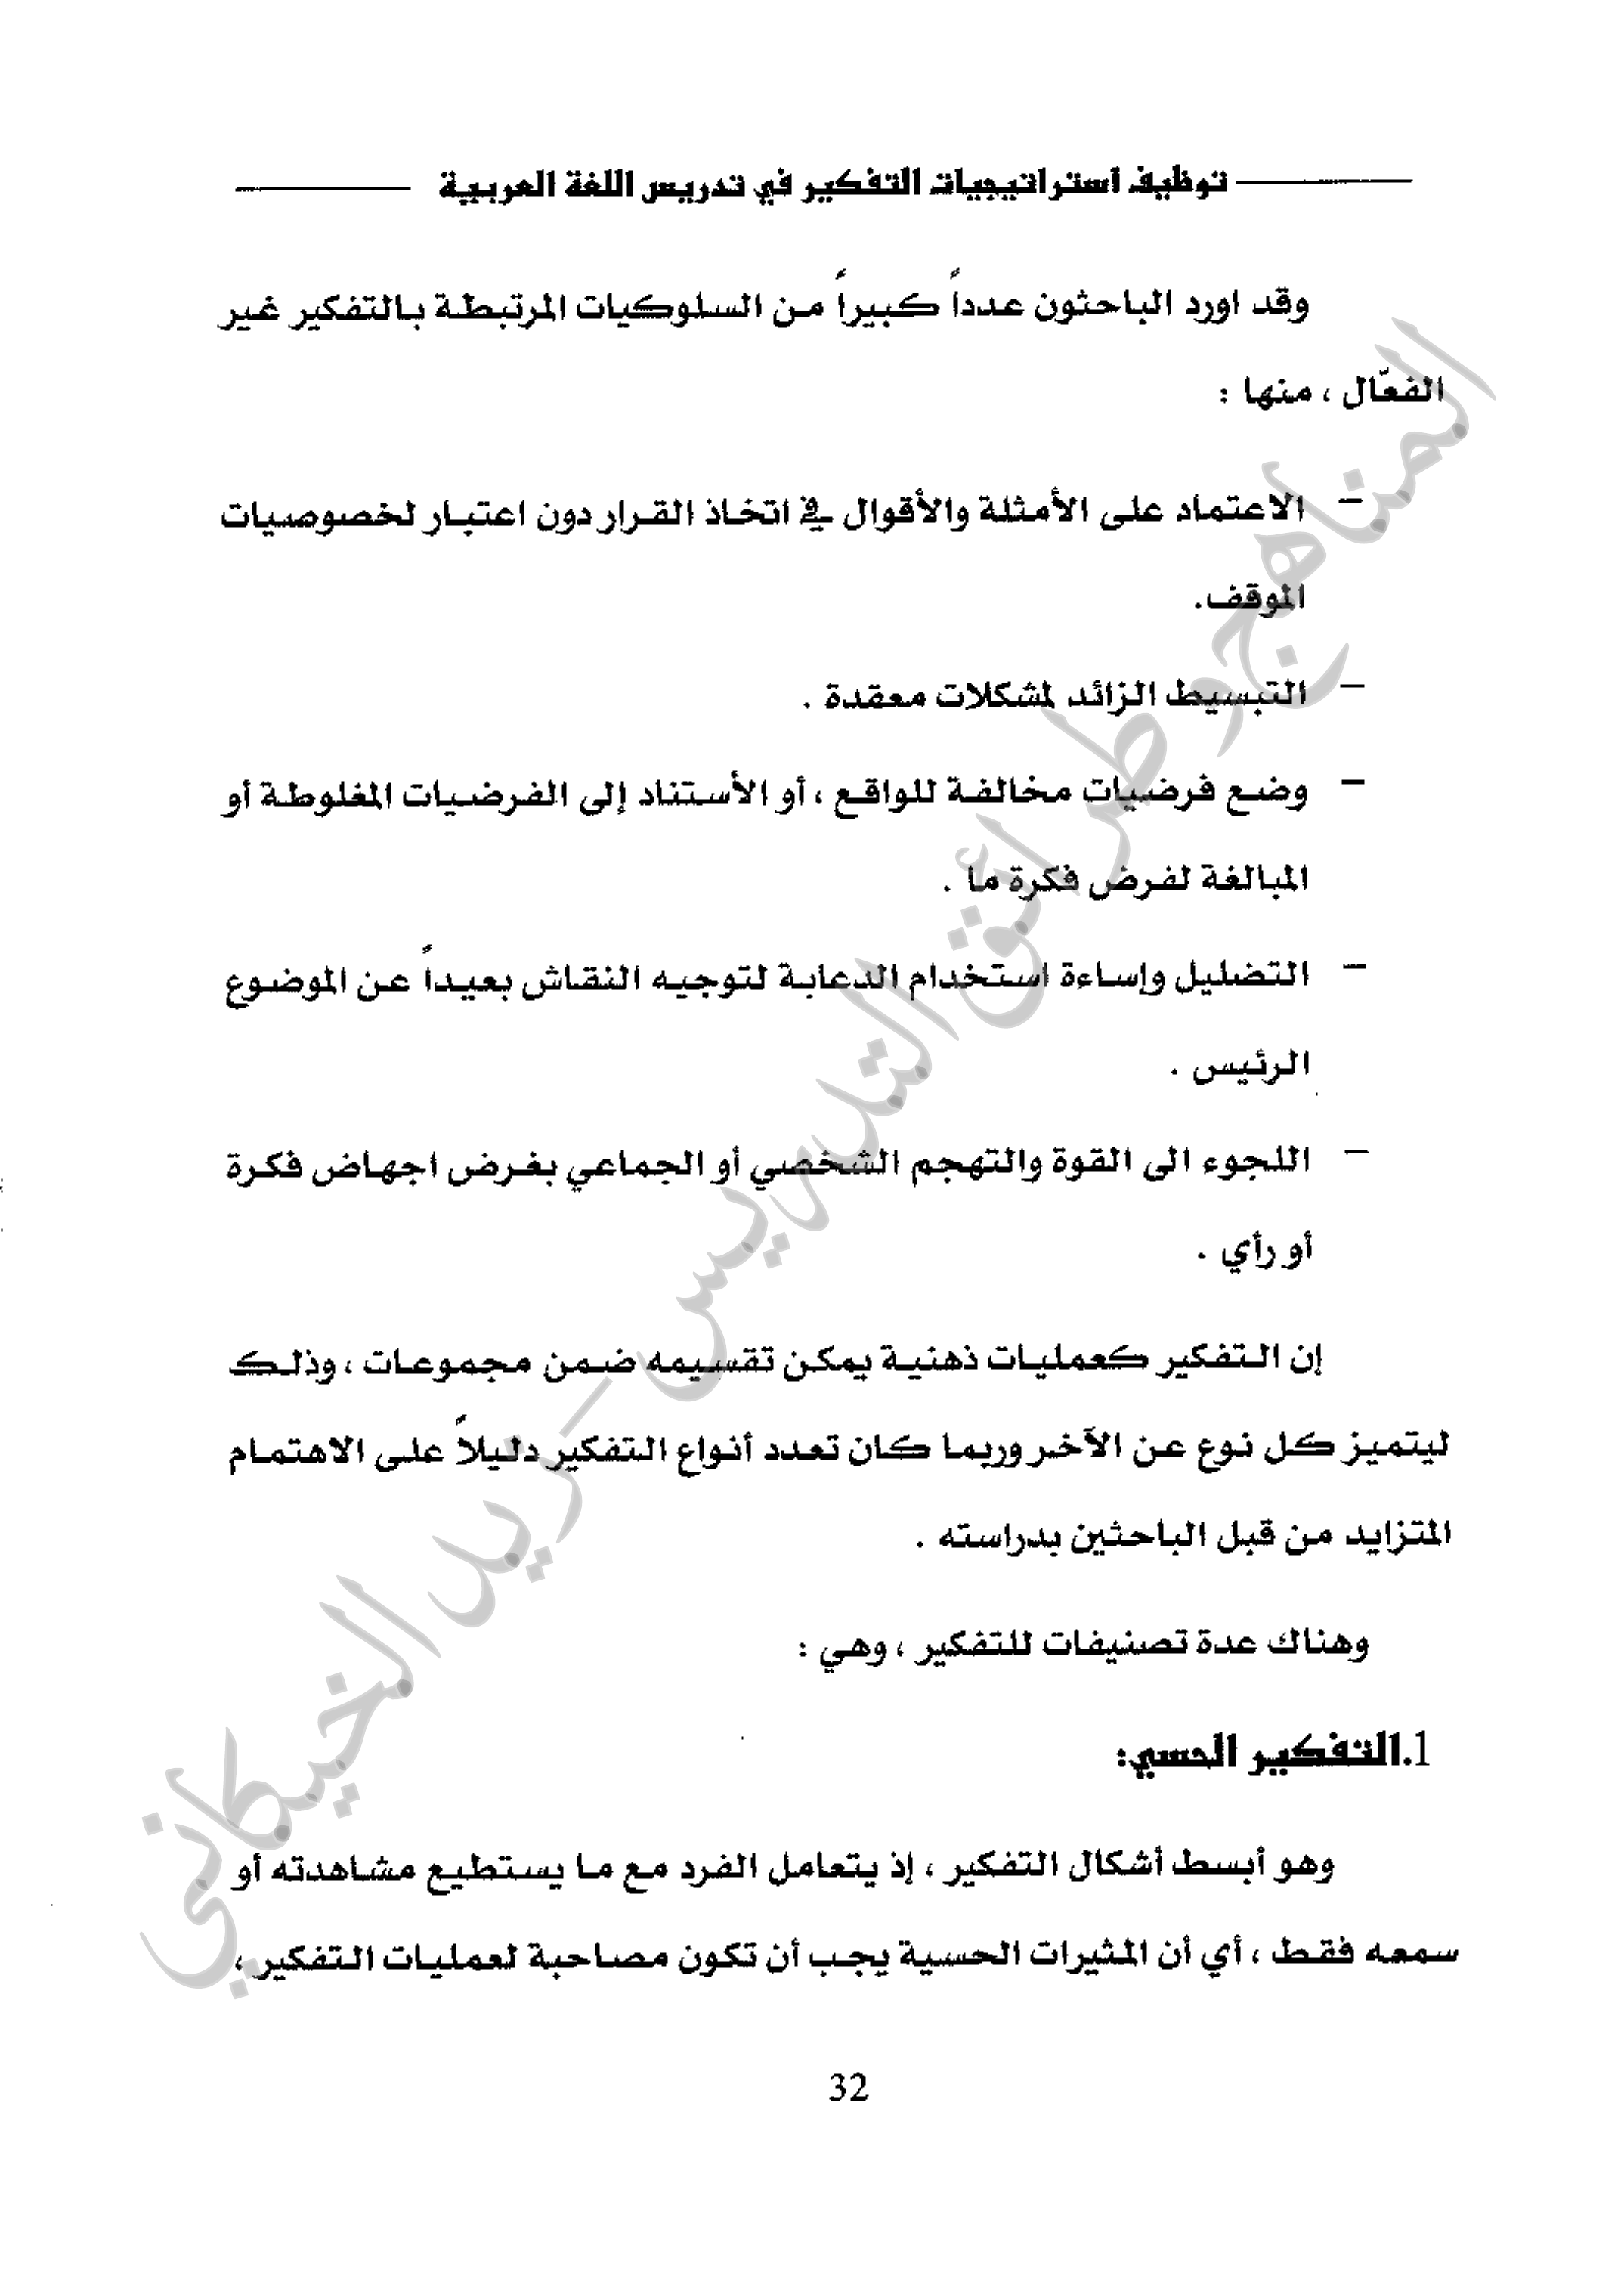 توظيف استراتيجيات التفكير في تدريس اللغة العربية
وقد اورد الباحثون عدداً كبيراً من السلوكيات المرتبطة بالتفكير غير
الفعّال ، منها :
– الاعتماد على الأمثلة والأقوال في اتخاذ القرار دون اعتبار لخصوصيات
الموقف.
– التبسيط الزائد لمشكلات معقدة .
– وضع فرضيات مخالفة للواقع ، أو الأستناد إلى الفرضيات المغلوطة أو
المبالغة لفرض فكرة ما .
– التضليل وإساءة استخدام الدعابة لتوجيه النقاش بعيداً عن الموضوع
الرئيس .
– اللجوء الى القوة والتهجم الشخصي أو الجماعي بغرض اجهاض فكرة
أو رأي .
إن التفكير كعمليات ذهنية يمكن تقسيمه ضمن مجموعات ، وذلك
ليتميز كل نوع عن الآخر وربما كان تعدد أنواع التفكير دليلاً على الاهتمام
المتزايد من قبل الباحثين بدراسته .
وهناك عدة تصنيفات للتفكير ، وهي :
1.التفكير الحسي:
وهو أبسط أشكال التفكير ، إذ يتعامل الفرد مع ما يستطيع مشاهدته أو
سمعه فقط ، أي أن المثيرات الحسية يجب أن تكون مصاحبة لعمليات التفكير ،
32
المناهج وطرائق التدريس - زيد الخيكاني